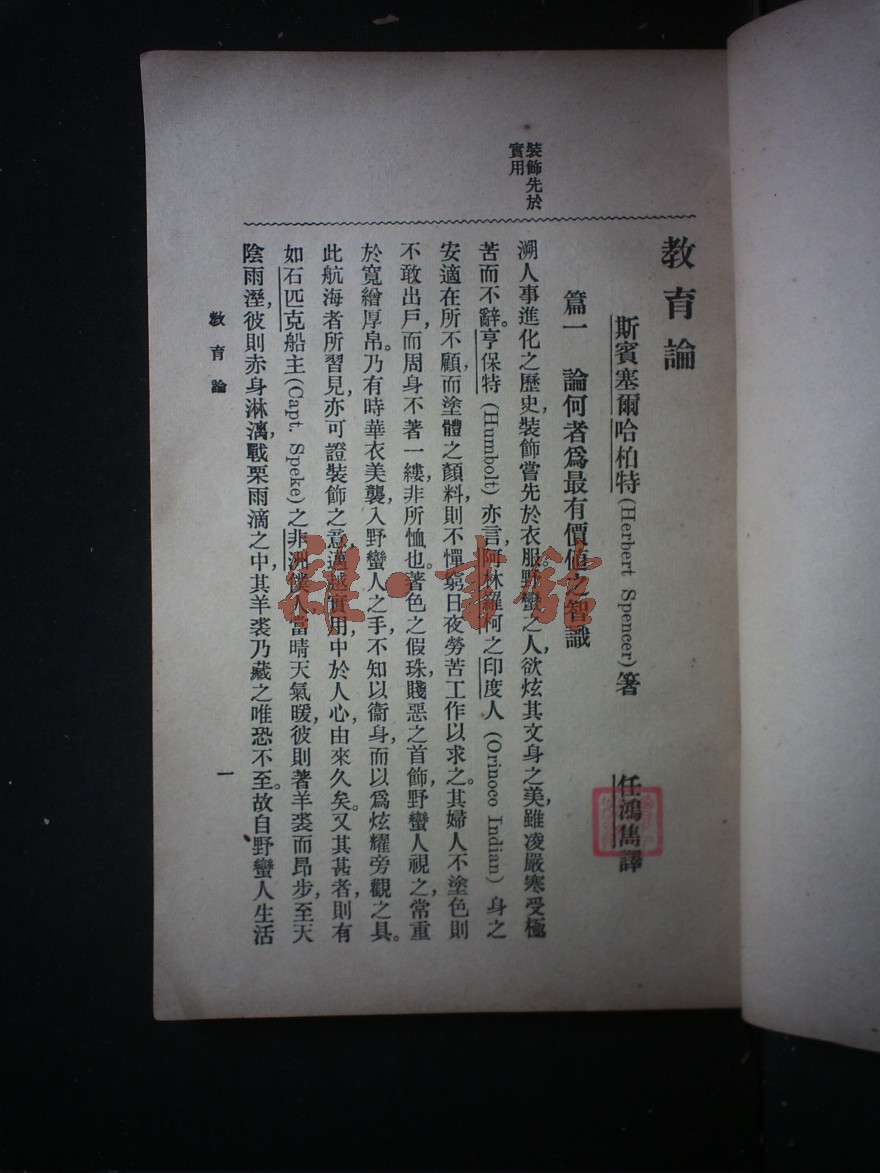 教育論
斯賓塞爾哈柏特(Herbert Spencer)箸 任鴻雋譯
篇一 論何者爲最有價值之智識
裝飾先於
實用
溯人事進化之歷史,裝飾嘗先於衣服。野蠻之人,欲炫其文身之美,雖凌嚴寒受極
苦而不辭。亨保特(Humbolt)亦言,阿林羅柯之印度人(Orinoco Indian)身之
安適在所不顧,而塗體之顏料,則不憚窮日夜勞苦工作以求之。其婦人不塗色則
不敢出戶,而周身不著一縷,非所恤也。著色之假珠,賤惡之首飾,野蠻人視之,常重
於寬繒厚帛。乃有時華衣美襲,入野蠻人之手,不知以衞身,而以爲炫耀旁觀之具。
此航海者所習見,亦可證裝飾之意,遠越實用,中於人心,由來久矣。又其甚者,則有
如石匹克船主(Capt. Speke)之非洲僕人,當晴天氣暖,彼則著羊裘而昂步,至天
陰雨溼,彼則赤身淋漓,戰栗雨滴之中,其羊裘乃藏之唯恐不至。故自野蠻人生活
教育論
一
雅·書館